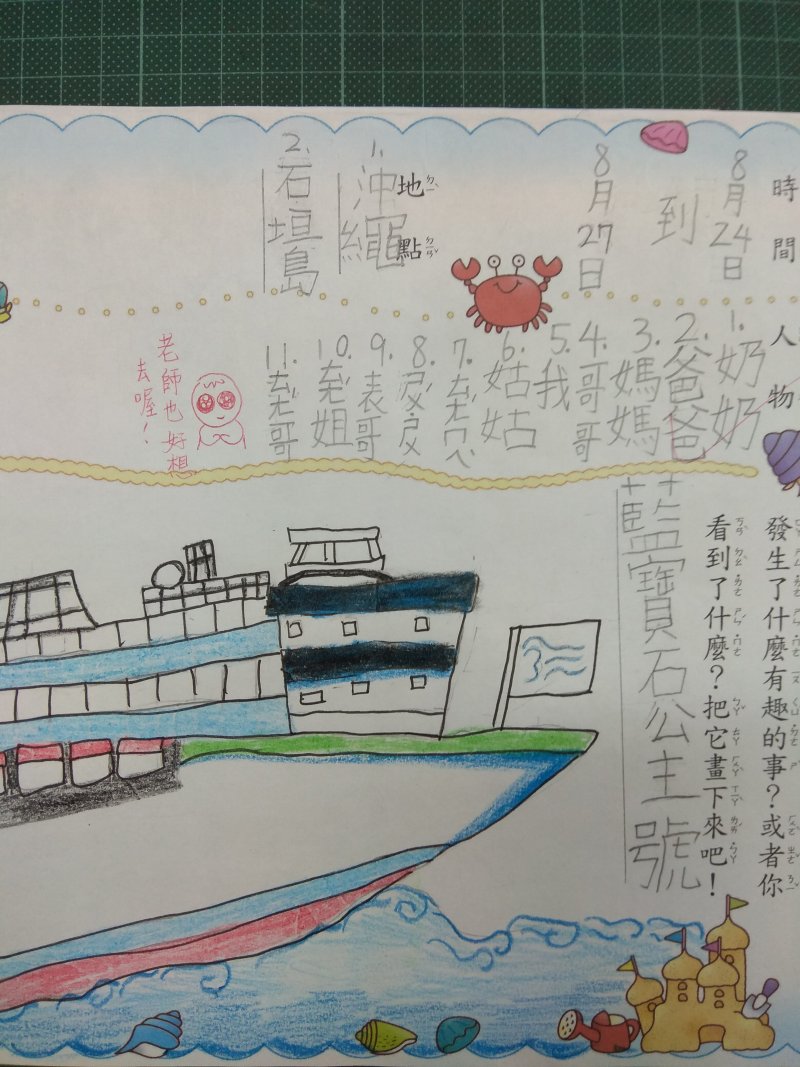 時間
8月24日
到
8月27日
地點
1.沖繩
2.石垣島
人物
1.奶奶
2.爸爸
3.媽媽
4.哥哥
5.我
6.姑姑
7.
8.
9.表哥
10.ㄊㄤˊ姐
11.ㄊㄤˊ哥
老師也好想
去喔！
發生了什麼有趣的事？或者你
看到了什麼？把它畫下來吧！
藍寶石公主號